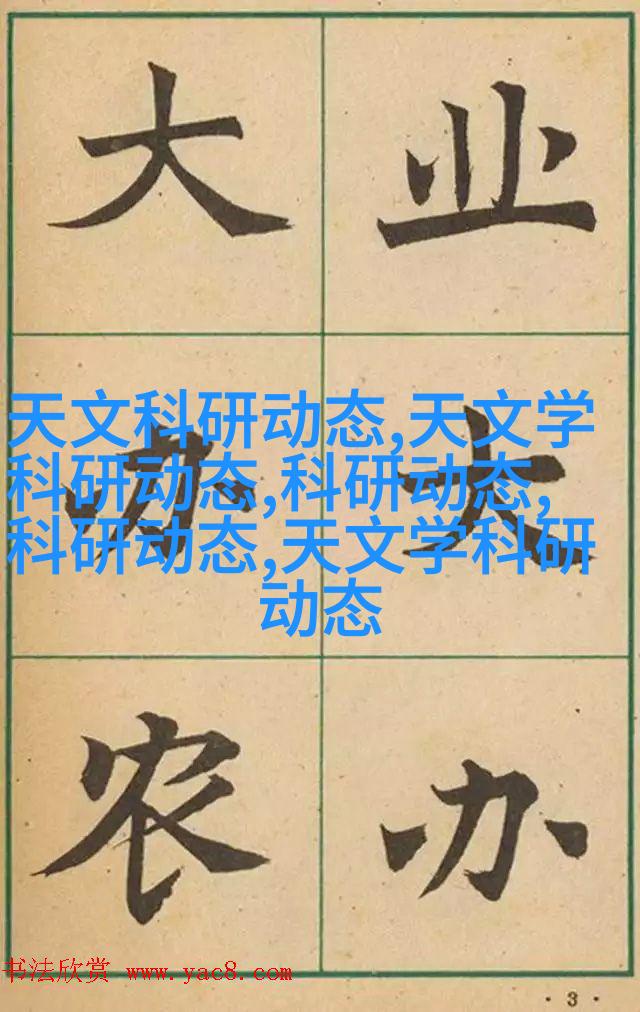 大 业
天文科研动态,天文学
科研动态,科研动态,
科研动态,天文学科研
动态
办 大
农 办
书法欣赏 www.yac8.com
·3·